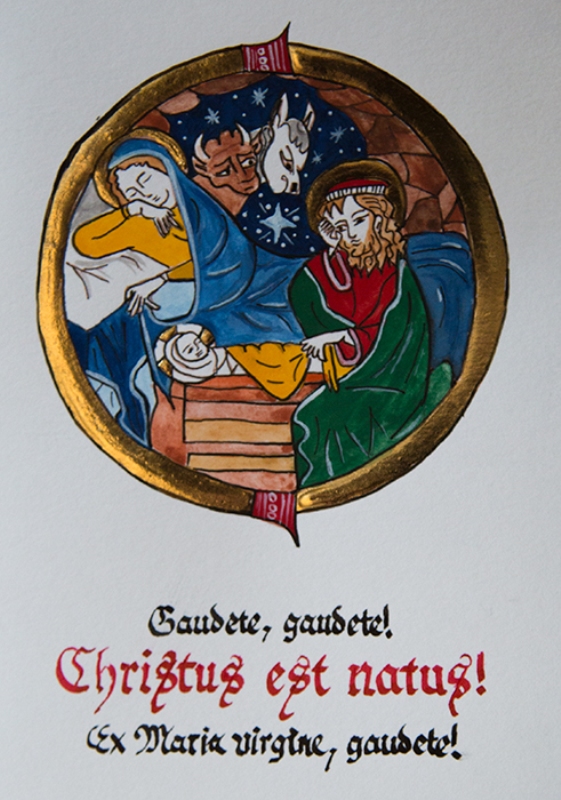 Gaudete, gaudete!
Christus est natus!
Ex Maria virgine, gaudete!